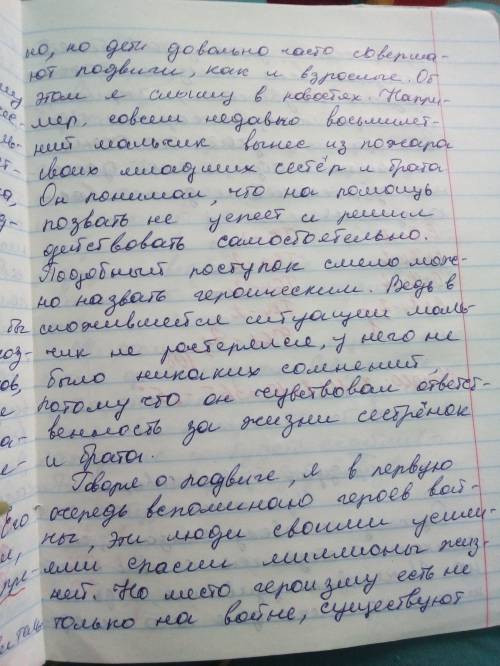 но, но дети довольно часто соверша-
ют подвиги, как и взрослые. Об
этом я слышу в новостях. Напри-
мер, совсем недавно восьмилет-
ний мальчик вынес из пожара
своих младших сестёр и брата
Он понимал, что на помощь
позвать не успеет и решил
действовать самостоятельно.
Подобный поступок смело мож-
но назвать героическим. Ведь в
сложившейся ситуации маль-
чик не растерялся, у него не
было никаких сомнений
потому что он чувствовал ответст-
венность за жизни сестрёнок
и брата.
Говоря о подвиге, я в первую
очередь вспоминаю героев вой-
ны, эти люди своими усили-
ями спасли миллионы жиз-
ней. Но место героизму есть не
только на войне, существуют